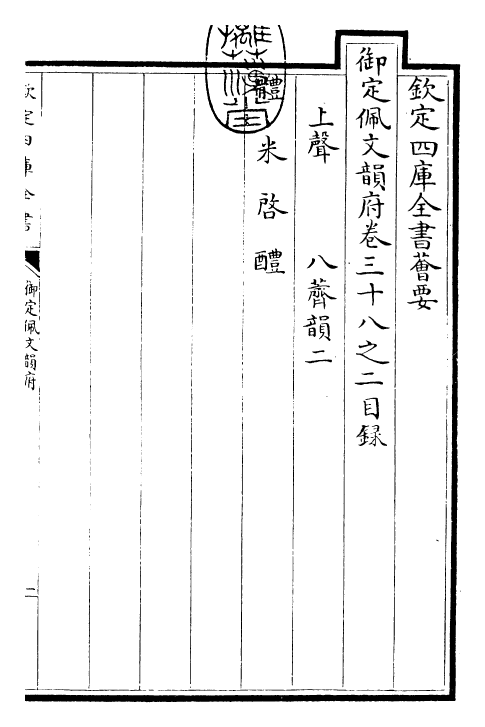 欽定四庫全書薈要
御定佩文韻府卷三十八之二目録
上聲 八薺韻二
體 米 啓 醴
欽定四庫全書
御定佩文韻府